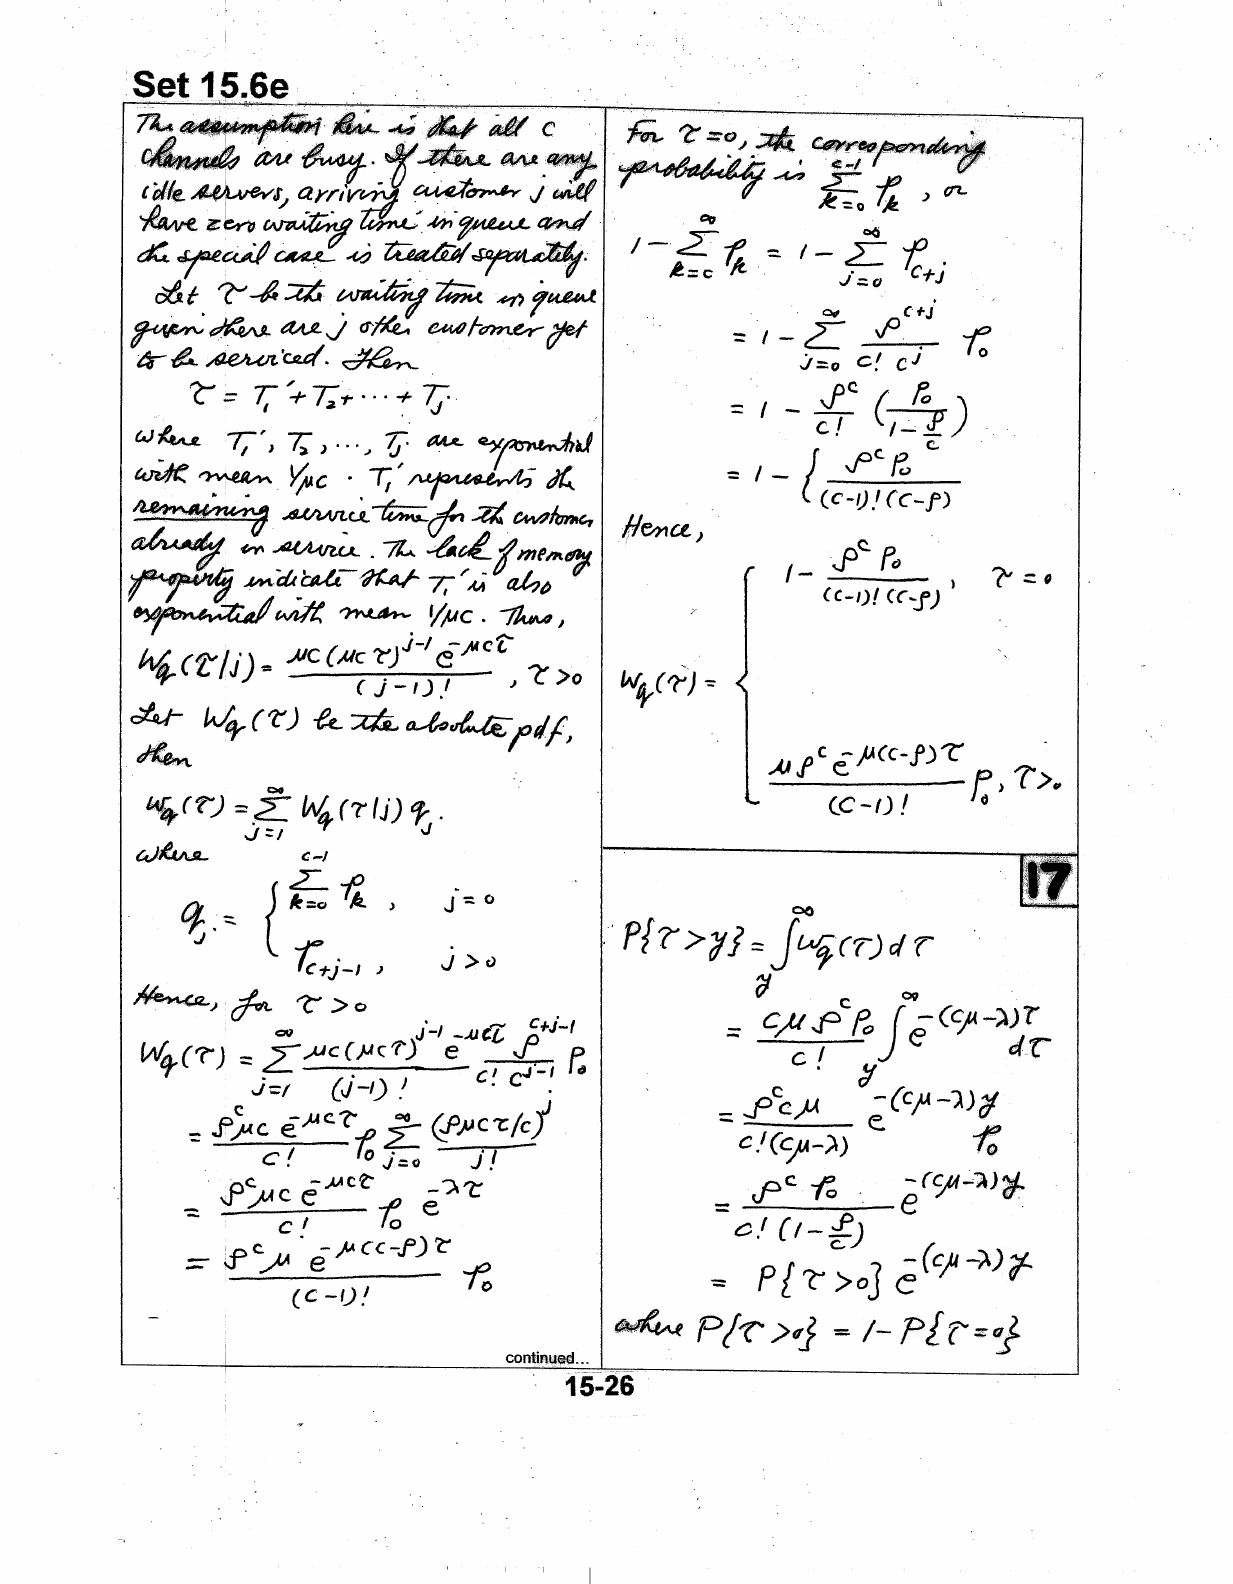 Set 15.6e
The assumption here is that all c
channels are busy. If there are any
idle servers, arriving customer j will
have zero waiting time in queue and
the special case is treated separately.
Let τ be the waiting time in queue
given there are j other customer yet
to be serviced. Then
τ = T₁′ + T₂ + ··· + Tⱼ.
where T₁′, T₂, ..., Tⱼ are exponential
with mean 1/μc. T₁′ represents the
remaining service time for the customer
already in service. The lack of memory
property indicate that T₁′ is also
exponential with mean 1/μc. Thus,
W_q(τ|j) = μc(μcτ)^{j-1} e^{-μcτ} / (j-1)! , τ>0
Let W_q(τ) be the absolute pdf,
then
w_q(τ) = Σ_{j=1}^{∞} W_q(τ|j) q_j.
where
q_j = { Σ_{k=0}^{c-1} p_k , j=0
p_{c+j-1} , j>0
Hence, for τ>0
W_q(τ) = Σ_{j=1}^{∞} μc(μcτ)^{j-1} e^{-μcτ} / (j-1)! ρ^{c+j-1} / c! c^{j-1} p₀
= ρ^c μc e^{-μcτ} / c! p₀ Σ_{j=0}^{∞} (ρμcτ/c)^j / j!
= ρ^c μc e^{-μcτ} / c! p₀ e^{-λτ}
= ρ^c μ e^{-μ(c-ρ)τ} / (c-1)! p₀
continued...
For τ=0, the corresponding
probability is Σ_{k=0}^{c-1} p_k , or
1 - Σ_{k=c}^{∞} p_k = 1 - Σ_{j=0}^{∞} p_{c+j}
= 1 - Σ_{j=0}^{∞} ρ^{c+j} / c! c^j p₀
= 1 - ρ^c / c! (p₀ / 1-ρ/c)
= 1 - { ρ^c p₀ / (c-1)!(c-ρ)
Hence,
W_q(τ) = { 1 - ρ^c p₀ / (c-1)!(c-ρ) , τ=0
μρ^c e^{-μ(c-ρ)τ} / (c-1)! p₀ , τ>0
17
P{τ>y} = ∫_y^∞ w_q(τ)dτ
= cμρ^c p₀ / c! ∫_y^∞ e^{-(cμ-λ)τ} dτ
= ρ^c cμ / c!(cμ-λ) e^{-(cμ-λ)y} p₀
= ρ^c p₀ / c!(1-ρ/c) e^{-(cμ-λ)y}
= P{τ>0} e^{-(cμ-λ)y}
where P{τ>0} = 1-P{τ=0}
15-26